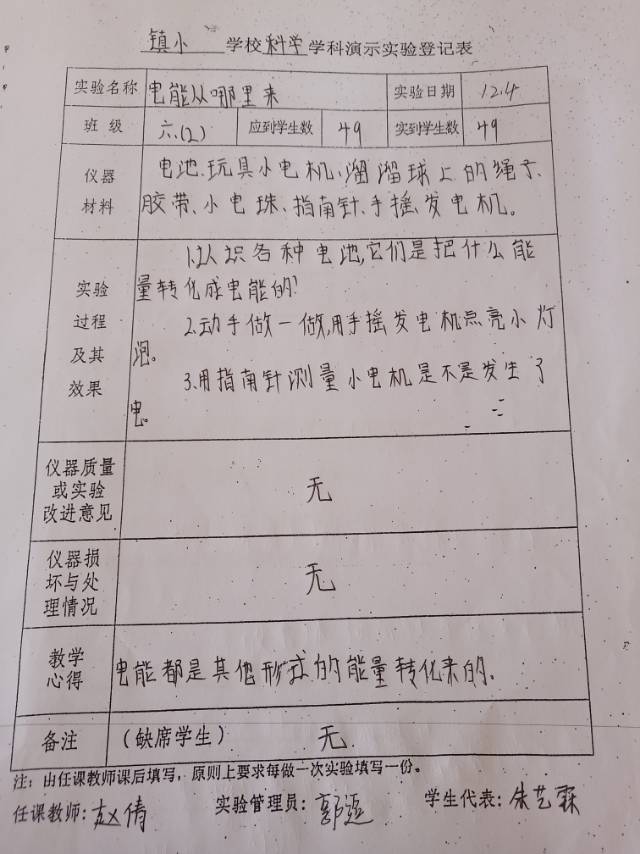 镇小 学校科学学科演示实验登记表
实验名称 电能从哪里来 实验日期 12.4
班 级 六.(2) 应到学生数 49 实到学生数 49
仪器 电池、玩具小电机、溜溜球上的绳子、
材料 胶带、小电珠、指南针、手摇发电机。
1.认识各种电池,它们是把什么能
实验 量转化成电能的?
过程 2.动手做一做,用手摇发电机点亮小灯
及其 泡。
效果 3.用指南针测量小电机是不是发生了
电。
仪器质量
或实验 无
改进意见
仪器损
坏与处 无
理情况
教学
心得 电能都是其他形式的能量转化来的。
备注 （缺席学生） 无
注：由任课教师课后填写，原则上要求每做一次实验填写一份。
任课教师：赵倩 实验管理员：郭 学生代表：朱艺霖